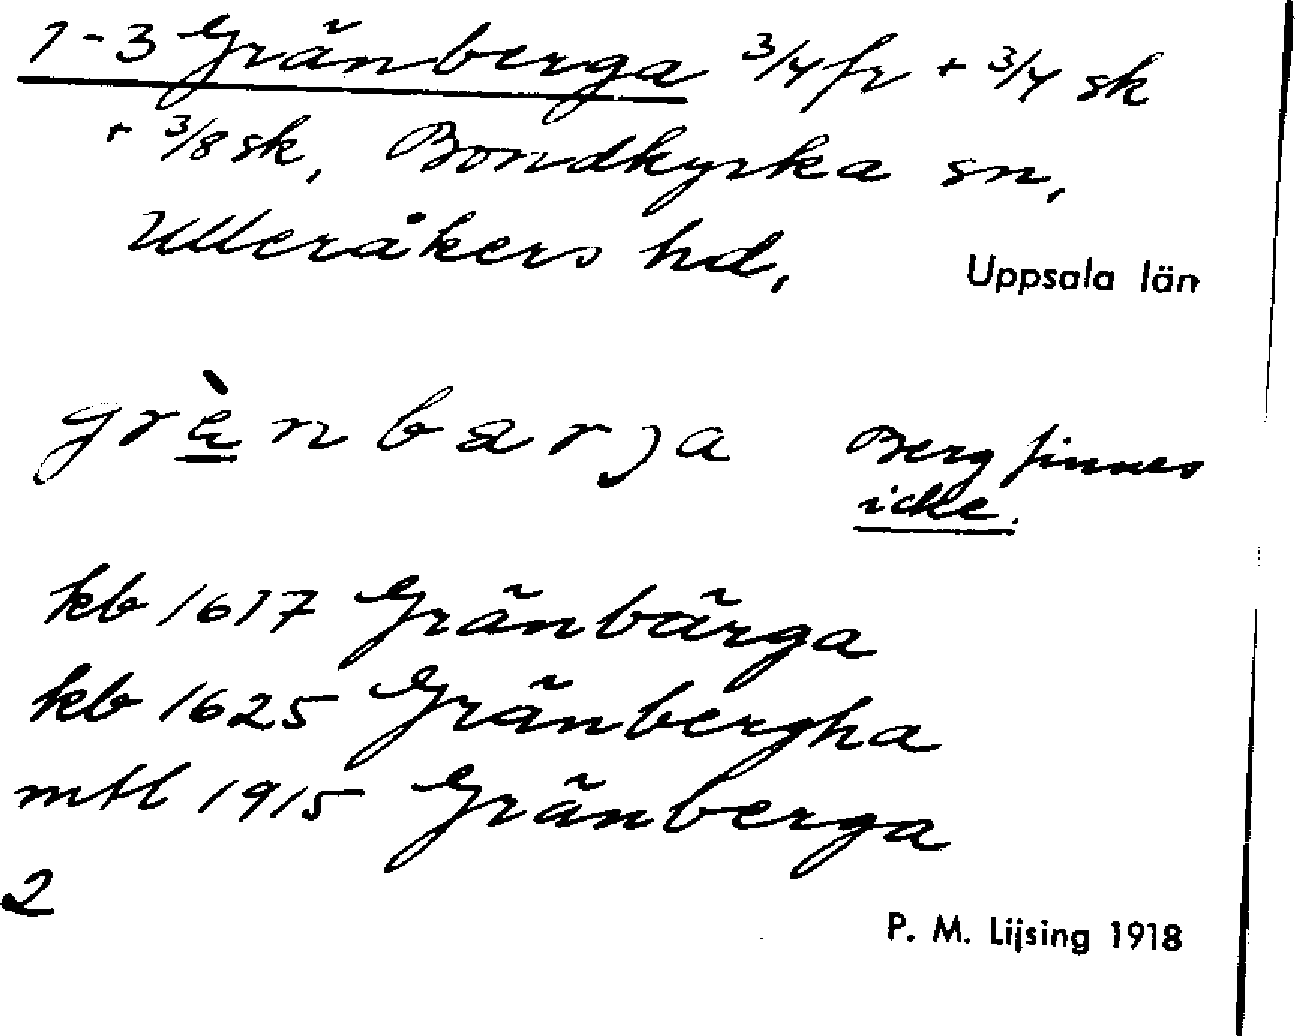 1-3 Gränberga 3/4 fr + 3/4 sk
+ 3/8 sk, Bondkyrka sn,
Ulleråkers hd, Uppsala län
grànbarja Berg finnes
icke.
kb 1617 Gränbärga
kb 1625 Gränbergha
mtl 1915 Gränberga
2
P. M. Lijsing 1918